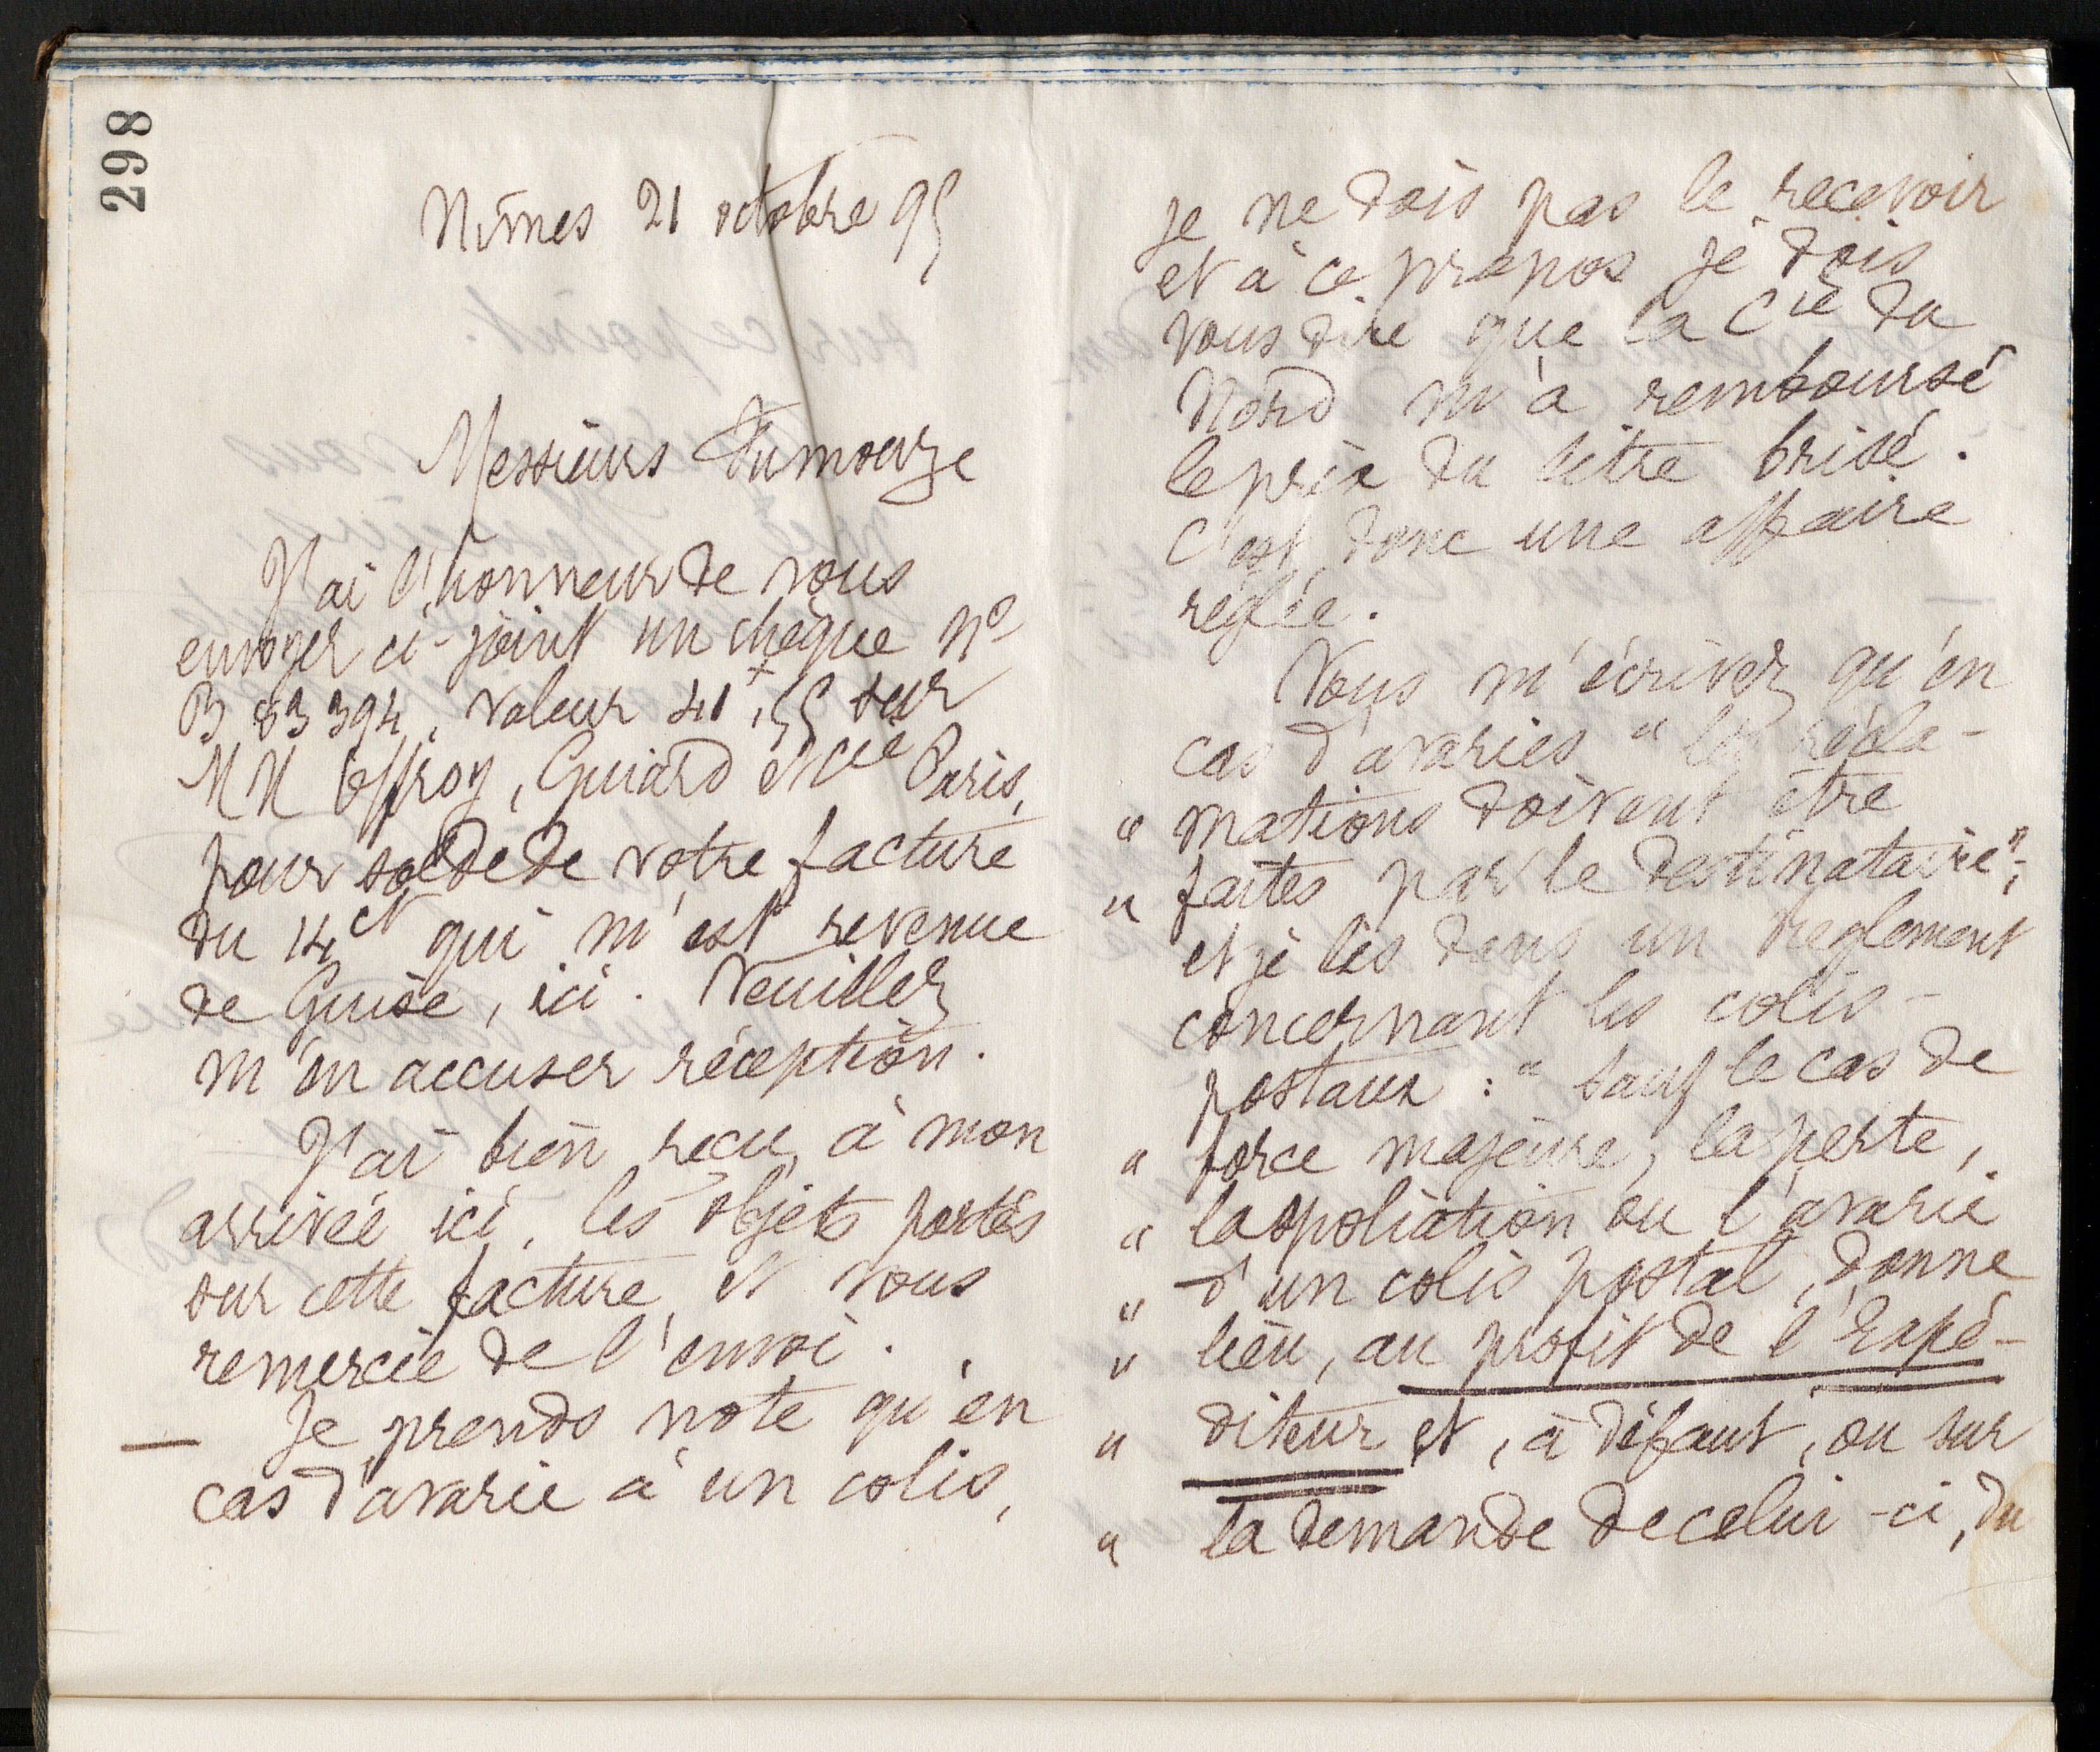 298
Nîmes 21 octobre 95
Messieurs Fumouze
J'ai l'honneur de vous
envoyer ci-joint un chèque No
B 83394, valeur 41f,55 sur
MM Offroy, Guiard et Cie Paris,
pour solde de votre facture
du 14 ct qui m'est revenue
de Guise, ici. Veuillez
m'en accuser réception.
J'ai bien reçu, à mon
arrivée ici, les objets portés
sur cette facture et vous
remercie de l'envoi.
— Je prends note qu'en
cas d'avarie à un colis,
je ne dois pas le recevoir
et à ce propos je dois
vous dire que la Cie du
Nord m'a remboursé
le prix du litre brisé.
C'est donc une affaire
réglée.
Vous m'écrivez qu'en
cas d'avaries " les récla-
" mations doivent être
" faites par le destinataire";
et je lis dans un règlement
concernant les colis-
postaux : " Sauf le cas de
" force majeure, la perte,
" la spoliation ou l'avarie
" d'un colis postal, donne
" lieu, au profit de l'Expé-
" diteur et, à défaut, ou sur
" la demande de celui-ci, du